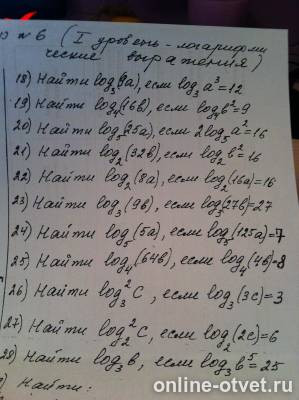 №6 (I уровень - логарифми
ческие выражения)
18) Найти log₃(9a), если log₃a³=12
19) Найти log₄(16b), если log₄b²=9
20) Найти log₅(25a), если 2log₅a²=16
21) Найти log₂(32b), если log₂b²=16
22) Найти log₂(8a), если log₂(16a)=16
23) Найти log₃(9b), если log₃(27b)=27
24) Найти log₅(5a), если log₅(125a)=7
25) Найти log₄(64b), если log₄(4b)=8
26) Найти log₃²C, если log₃(3c)=3
27) Найти log₂²C, если log₂(2c)=6
28) Найти log₃b, если log₃b⁵=25
) Найти:
online-otvet.ru